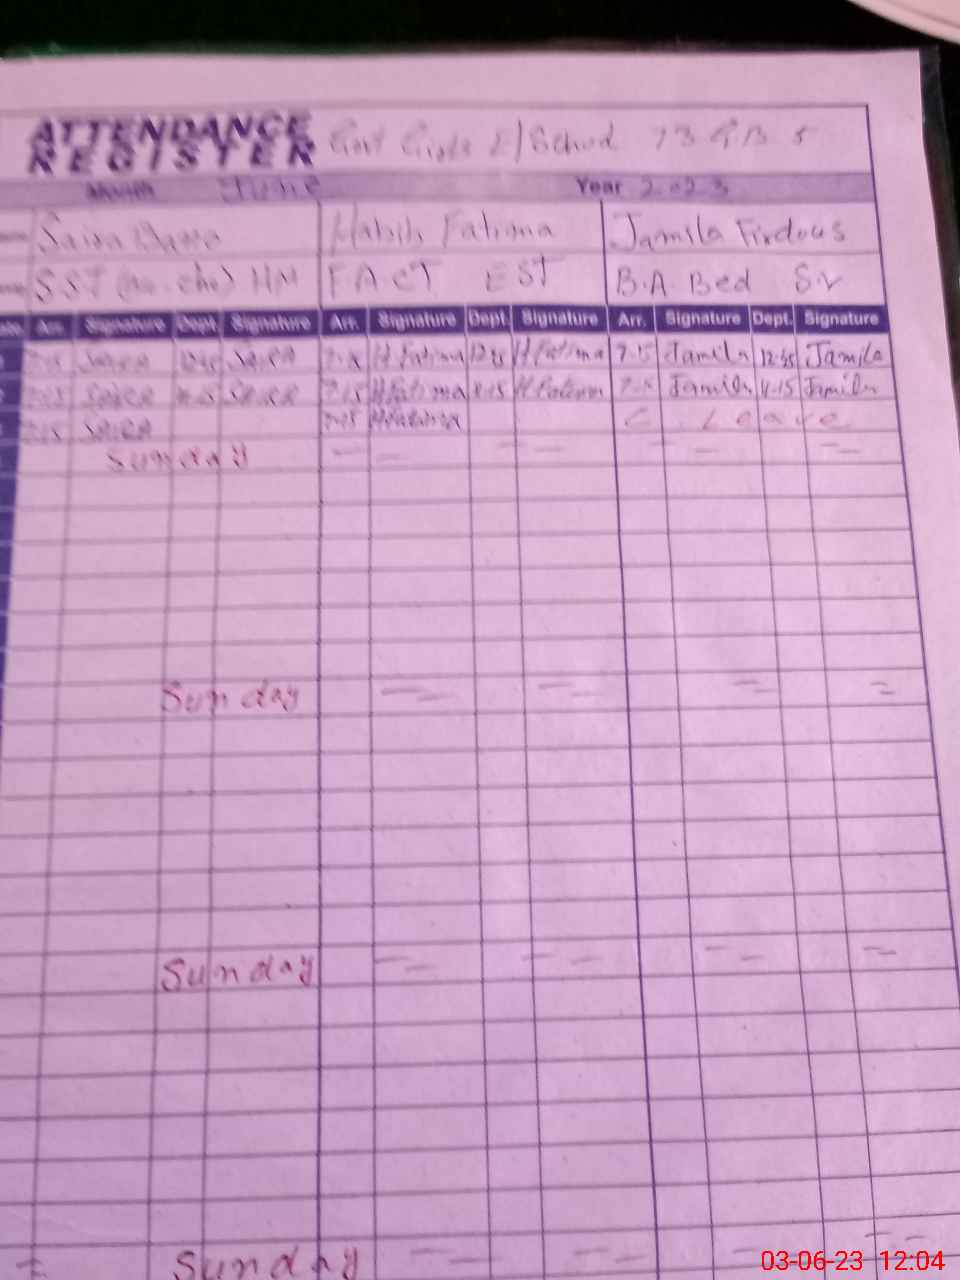 ATTENDANCE
REGISTER
Govt Girls E/School 73 GB 5
Month June Year 2023
Saira Bano Habib Fatima Jamila Firdous
SST HM F.A CT EST B.A. Bed S.V
Arr. Signature Dept. Signature Arr. Signature Dept. Signature Arr. Signature Dept. Signature
7-15 SAIRA SAIRA H Fatima H Fatima 7-15 Jamila 12-45 Jamila
SAIRA SAIRA 7-15 H Fatima 11-15 H Fatima Jamila 11-15 Jamila
7-15 SAIRA 7-15 H Fatima C Leave
Sunday
Sunday
Sunday
Sunday
03-06-23 12:04